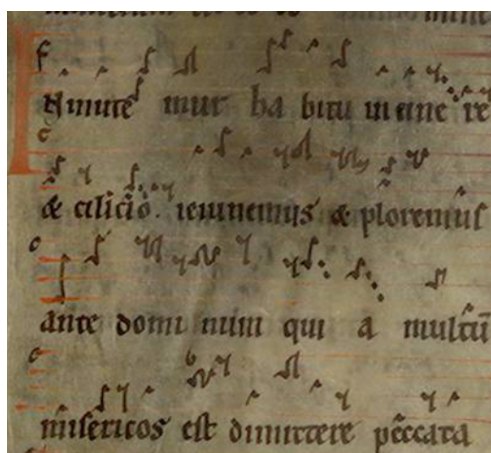 INmute mur ha bitu in cine re
& cilicio. ieiunemus & ploremus
ante domi num qui a multū
misericos est dimittere peccata